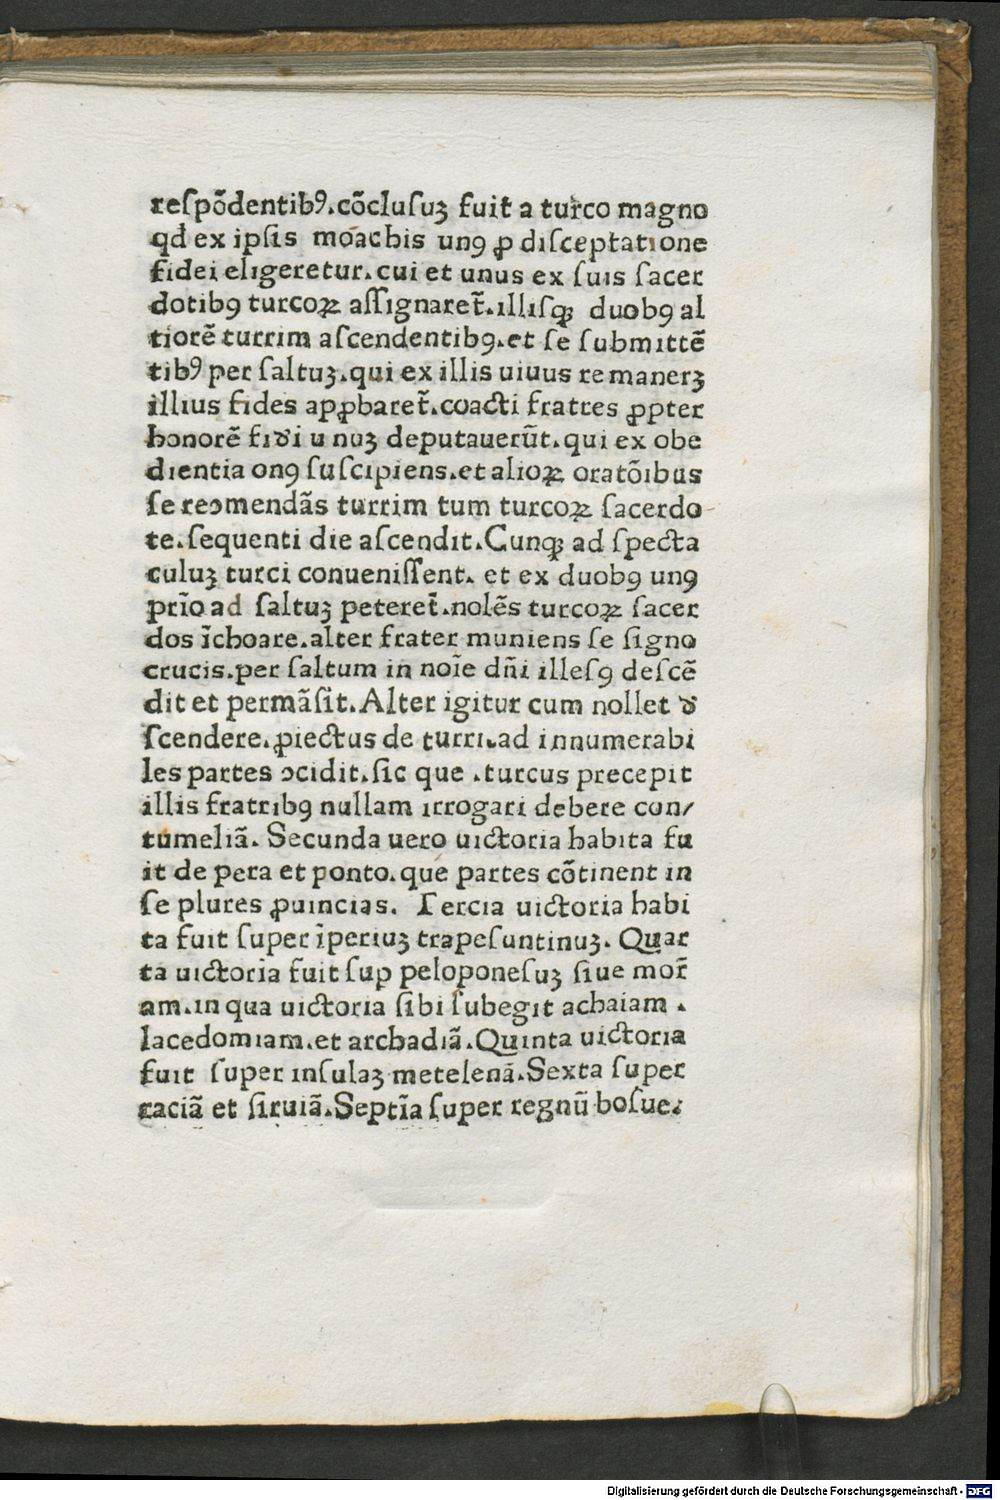 reſpõdentibꝰ.cõcluſuꝫ fuit a turco magno
qđ ex ipſis moachis unꝰ ꝓ diſceptatione
fidei eligeretur.cui et unus ex ſuis ſacer
dotibꝰ turcoꝝ aſſignaret̃.illiſqꝫ duobꝰ al
tiorẽ turrim aſcendentibꝰ.et ſe ſubmittẽ
tibꝰ per ſaltuꝫ.qui ex illis uiuus remanerꝫ
illius fides apꝓbaret̃.coacti fratres ꝓpter
honorẽ fiđi u nuꝫ deputauerũt.qui ex obe
dientia onꝰ ſuſcipiens.et alioꝝ oratõibus
ſe reↄmendãs turrim tum turcoꝝ ſacerdo
te.ſequenti die aſcendit.Cunqꝫ ad ſpecta
culuꝫ turci conueniſſent. et ex duobꝰ unꝰ
prĩo ad ſaltuꝫ peteret̃.nolẽs turcoꝝ ſacer
dos ĩchoare.alter frater muniens ſe ſigno
crucis.per ſaltum in noĩe dñi illeſꝰ deſcẽ
dit et permãſit.Alter igitur cum nollet đ
ſcendere.ꝓiectus de turri.ad innumerabi
les partes ↄcidit.ſic que .turcus precepit
illis fratribꝰ nullam irrogari debere con/
tumeliã. Secunda uero uictoria habita fu
it de pera et ponto.que partes cõtinent in
ſe plures ꝓuincias. Tercia uictoria habi
ta fuit ſuper ĩperiuꝫ trapeſuntinuꝫ. Quar
ta uictoria fuit ſup peloponeſuꝫ ſiue mor̃
am.in qua uictoria ſibi ſubegit achaiam .
lacedomiam.et archadiã.Quinta uictoria
fuit ſuper inſulaꝫ metelenã.Sexta ſuper
raciã et ſiruiã.Septĩa ſuper regnũ boſue.
Digitalisierung gefördert durch die Deutsche Forschungsgemeinschaft - DFG